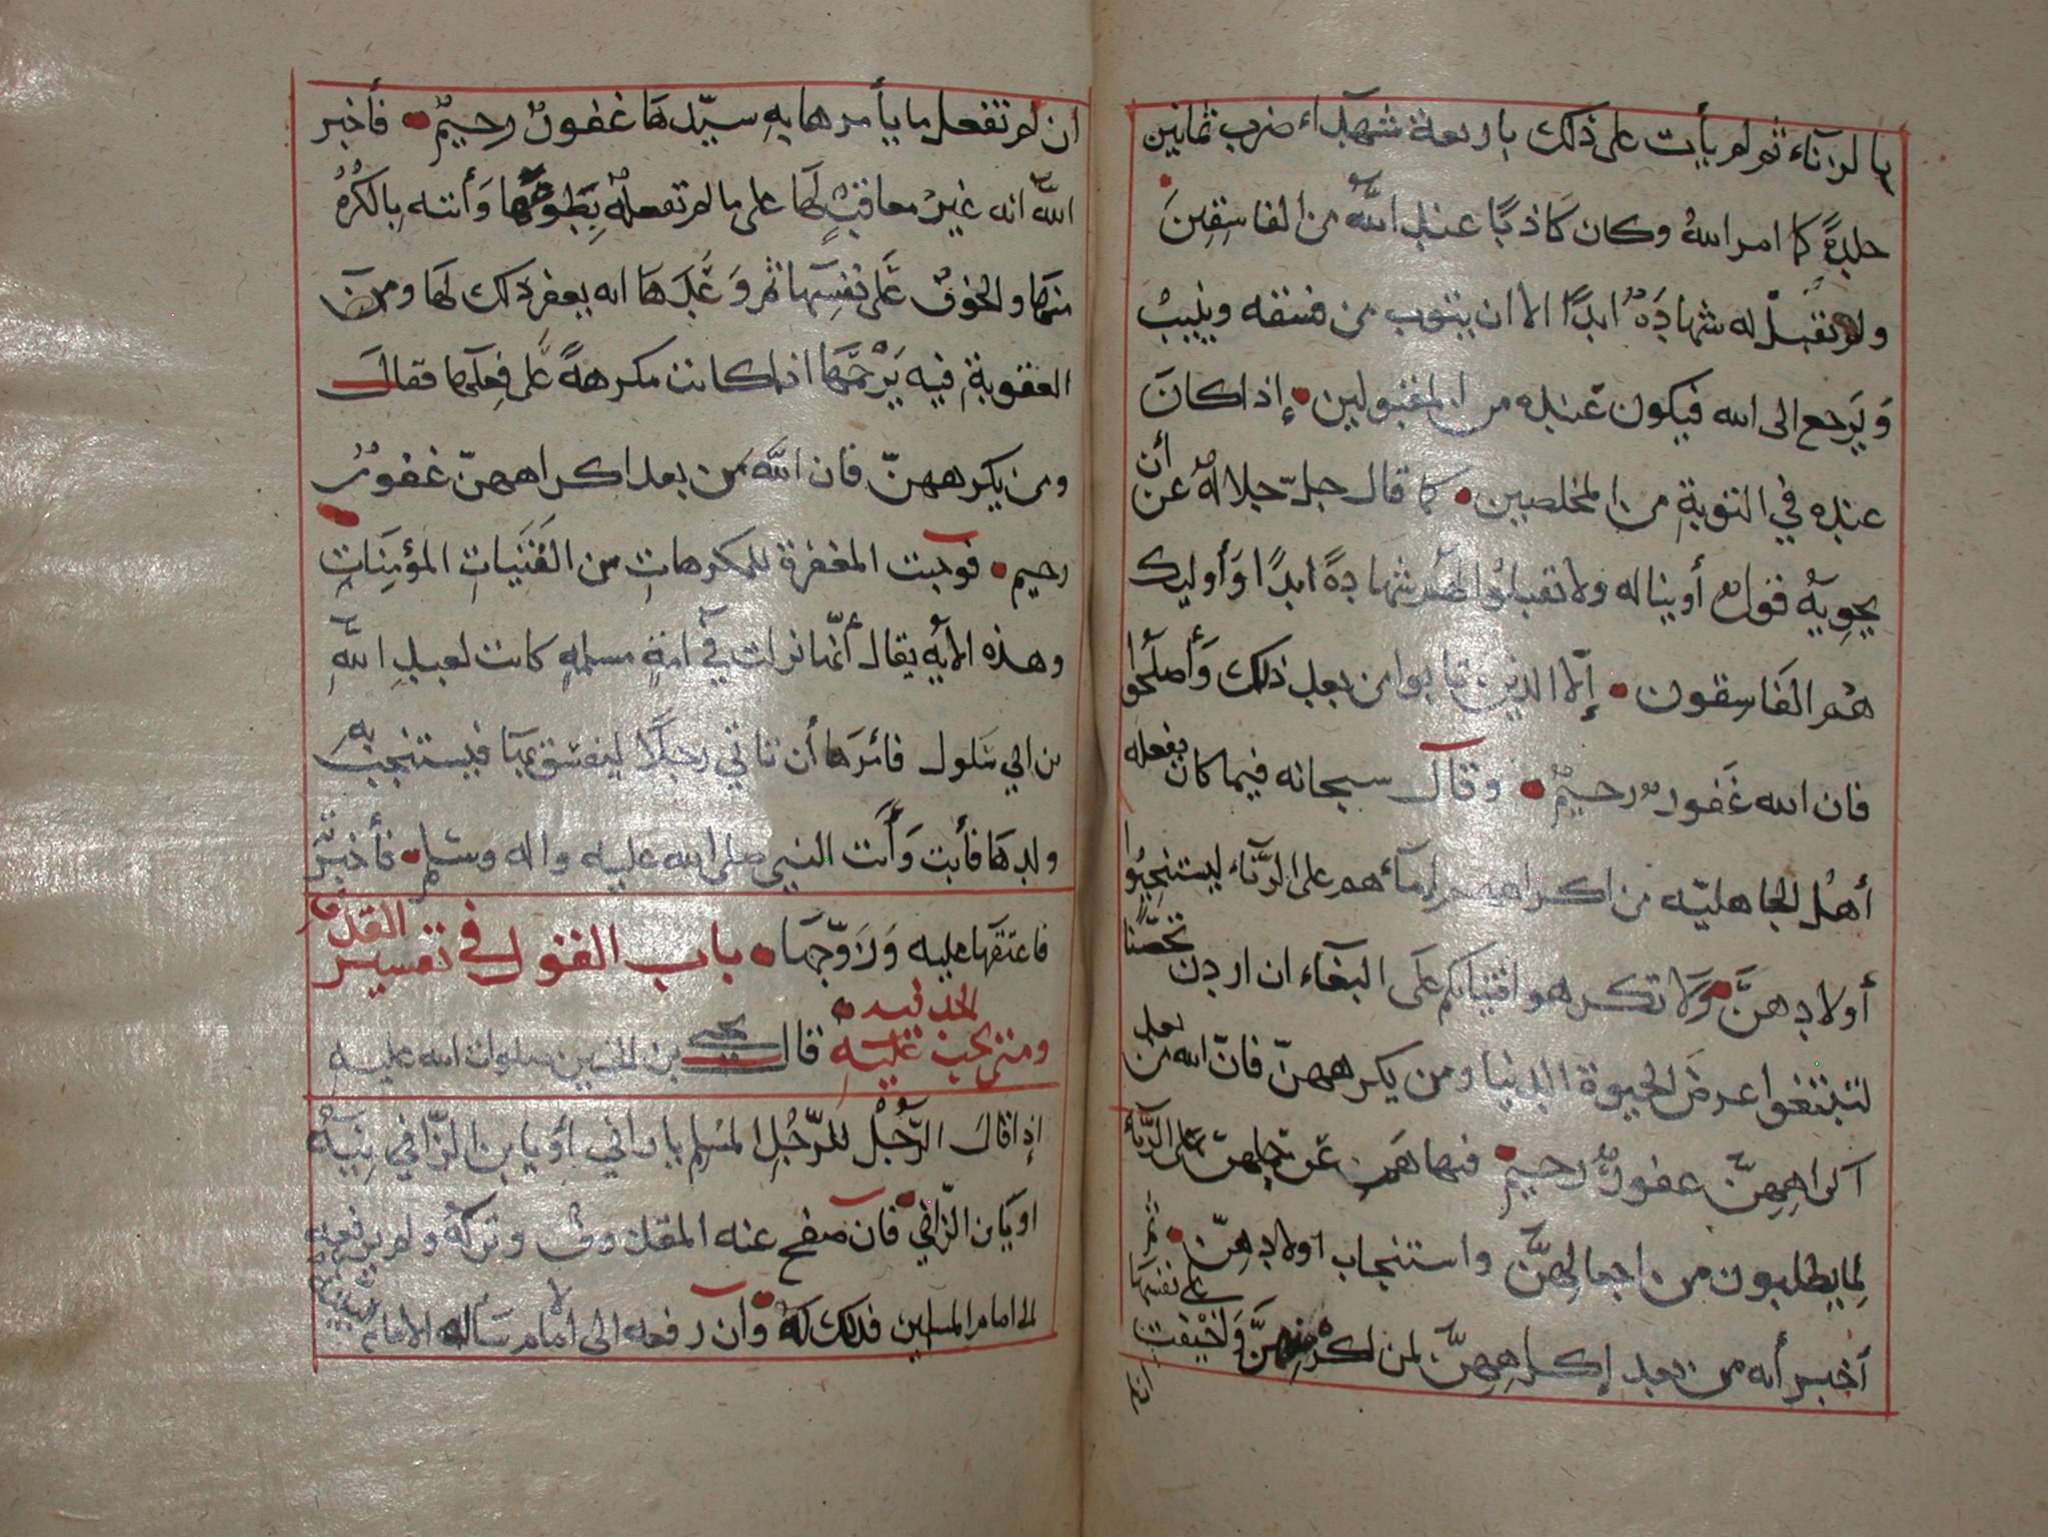 بالزناء ثم لم يأت على ذلك باربعة شهدآء ضرب ثمانين
جلدةً كما امر اللهُ وكان كاذبًا عند اللّه من الفاسِقِينَ
ولم تقبلْ له شهادَة ابدًا الا ان يتوب من فسقه وينيب
وَيَرجع الى الله فيكون عَنده من المقبولين إذا كانَ
عنده في التوبةِ من المخلصين كما قال جلّ جلاله عن أن
يحويَه قول أو يناله ولا تقبلوُا لهُم شهادةً ابدًا وَأوليك
هُم الفَاسِقون إلّا الذين تابوا من بعد ذلك وَأصلَحوا
فان الله غَفور رحيمٌ وقال سبحانه فيما كان يفعله
أهلُ الجاهليّه من اكراههم لإمآءهم على الزَّناء ليستنجِبُوا
أولادهنَّ وَلا تكرهوا فتيَاتكم علَى البغاء ان اردن تحَصّنًا
لتبتغوا عرضَ الحيوة الدنيا ومن يكرههنّ فانّ الله من بعد
اكراهِهِنّ غفورٌ رحيمٌ فنهاهم عن حملهن على الزناء
لما يطلبون من اجعالهنَّ واستنجاب أولادِهِنّ ثم
أخبر أنه من بعد إكراهِهِنّ لمن اكره منهنَّ وَخِيفت على نفسها
ان لم تفعل ما يأمرها بهِ سيّدهَا غفورٌ رحيمٌ فأخبر
اللّه انه غيرُ معاقبٍ لهَا على ما لم تفعله بِطَوعهَا وَأتته بِالكُرْهُ
منهَا والخوف عَلى نفسِهَا ثم وَعَدَهَا انه يغفر ذلك لهَا ومن
العقوبةِ فيه يَرْحَمُهَا اذا كانت مكرهةً عَلى فِعلهَا فقالَ
ومن يكرههنّ فان اللَّه من بعد اكراههنّ غفورٌ
رحيم فوجبت المغفرة للمكرهاتِ من الفَتَيَاتِ المؤمِنَاتِ
وهذه الايةُ يقال أنّها نزلت في أمةٍ مسلمةٍ كانت لعبدِ اللّهِ
بن ابي سَلول فامَرَهَا أن تاتي رجلًا ليفسق بهَا فيستنجب به
ولدهَا فأبت وَأتت النبي صلى الله عليه واله وسَلم فأخبرته
فاعتقهَا عليه وَزَوّجهَا باب القول في تفسير القذف
ومتى يجب عَليهِ الحد فيه قال يحيى بن الحسين صلوات الله عليهِ
إذا قالَ الرّجُلُ للرّجُلِ المسْلم يا زاني أو يا بن الزّاني بنيّه
او يَا بن الزّاني فان صفح عنه المقذوف وتركهُ ولم يرفعه
الى امام المسلمين فذلك لهُ وان رفعه الى الامام سَأله الامام البينه